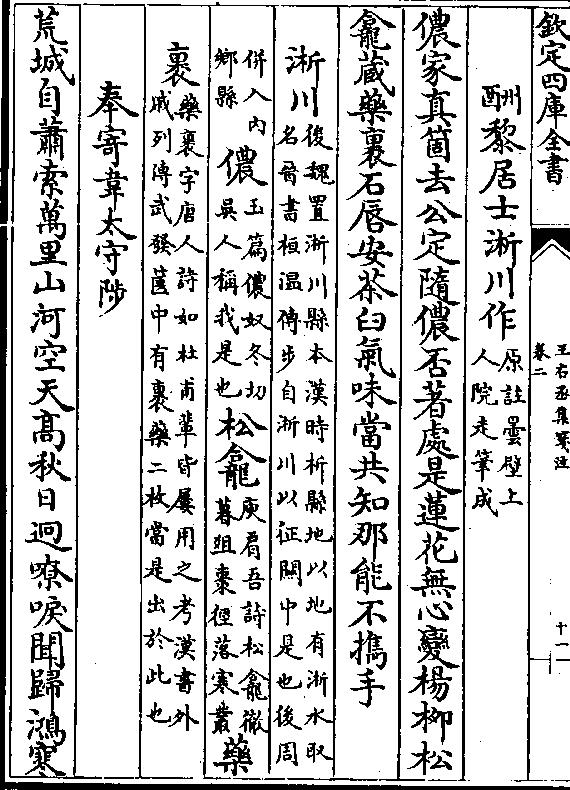 欽定四庫全書
王右丞集箋注
卷二
十一
酬黎居士淅川作
原註曇壁上
人院走筆成
儂家真箇去公定隨儂否著處是蓮花無心變楊柳松
龕蔵藥裹石唇安茶臼氣味當共知那能不攜手
淅川
後魏置淅川縣本漢時析縣地以地有淅水取
名晉書桓温傳步自淅川以征關中是也後周
併入內
鄉縣
儂
玉篇儂奴冬切
吳人稱我是也
松龕
庾肩吾詩松龕徹
暮俎棗徑落寒叢
藥
裹
藥裹字唐人詩如杜甫輩皆屢用之考漢書外
戚列傳武發篋中有裹藥二枚當是出於此也
奉寄韋太守陟
荒城自蕭索萬里山河空天高秋日迥嘹唳聞歸鴻寒